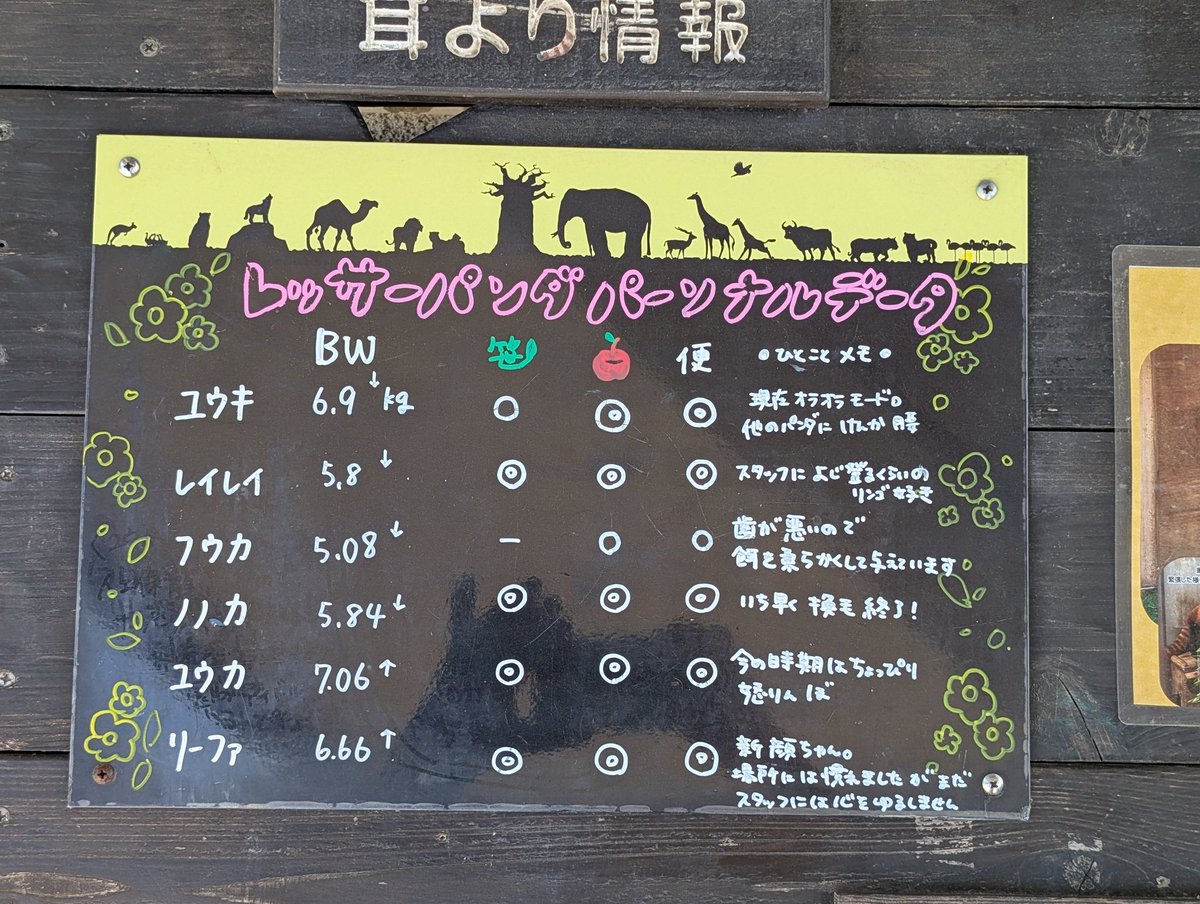 耳より情報
レッサーパンダ パーソナルデータ
BW 笹 便 •ひとこと メモ•
ユウキ 6.9↓kg ○ ◎ ◎ 現在オラオラモード。
他のパンダに けんか腰
レイレイ 5.8↓ ◎ ◎ ◎ スタッフに よじ登るくらいの
リンゴ好き
フウカ 5.08↓ − ○ ○ 歯が悪いので
餌を柔らかくして与えています
ノノカ 5.84↓ ◎ ◎ ◎ いち早く 換毛 終了!
ユウカ 7.06↑ ◎ ◎ ◎ 今の時期はちょっぴり
怒りんぼ
リーファ 6.66↑ ◎ ◎ ◎ 新顔ちゃん。
場所には慣れましたがまだ
スタッフには心をゆるしません